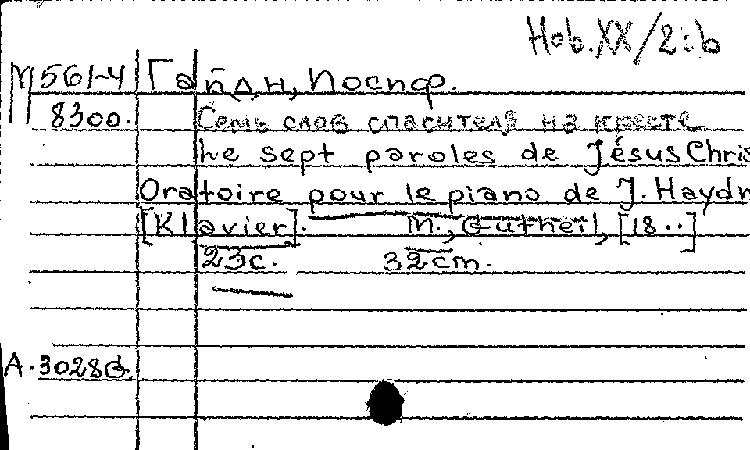 Hob. XX/2:b
M 561-4 Гайдн, Иосиф.
8300. Семь слов спасителя на кресте
Le sept paroles de Jésus Chris
Oratoire pour le piano de J. Haydn
[Klavier]. M., Gutheil, [18..]
23с. 32cm.
А.3028G.